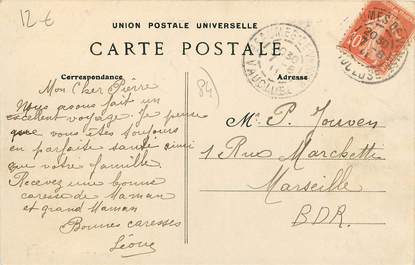 12€
UNION POSTALE UNIVERSELLE
CARTE POSTALE
Correspondance
Adresse
84
Mon Cher Pierre
Nous avons fait un
excellent voyage. Je pense
que vous êtes toujours
en parfaite santé ainsi
que votre famille.
Recevez une bonne
caresse de Maman
et grand Maman
Bonnes caresses
Léone
VAUCLUSE
VAUCLUSE
Mr. P. Jouven
1 Rue Marchetti
Marseille
B.D.R.